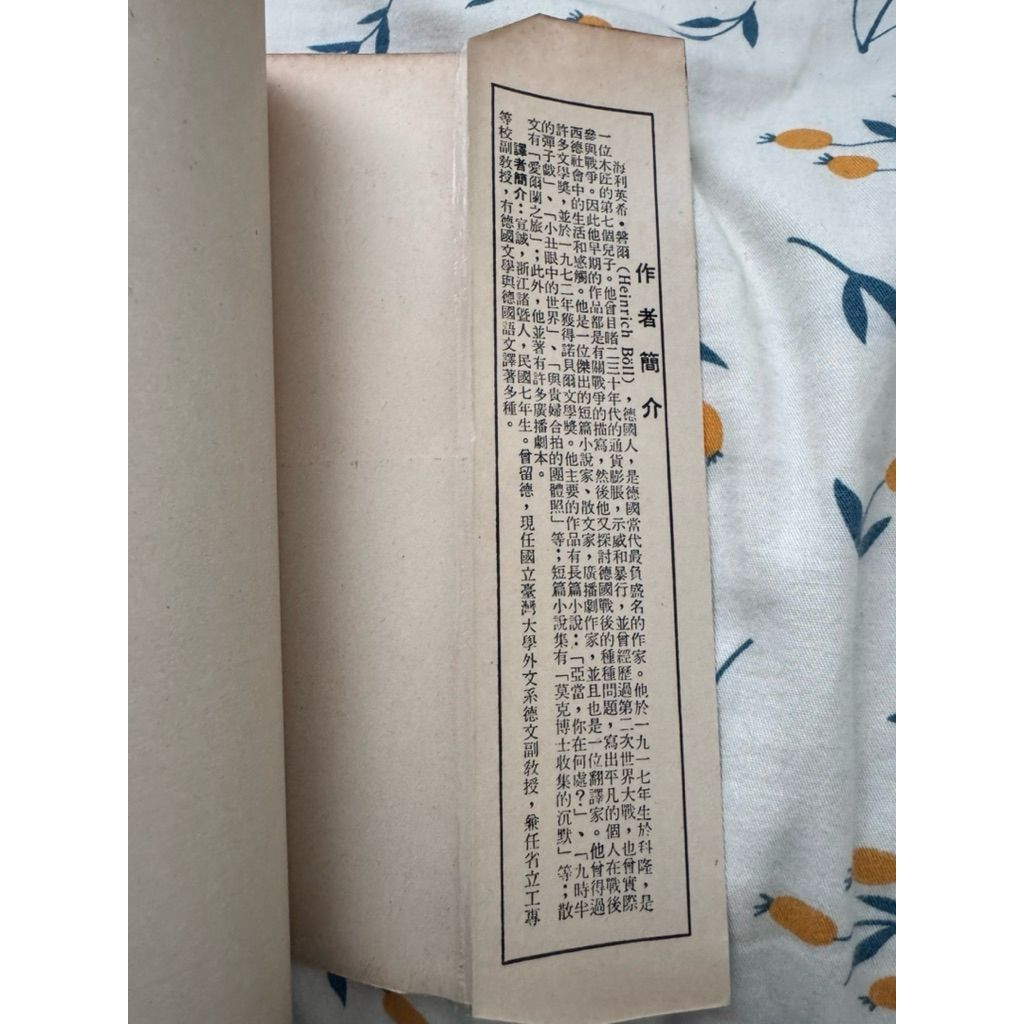 作者簡介
海利英希·磐爾(Heinrich Böll)，德國人，是德國當代最負盛名的作家。他於一九一七年生於科隆，是
一位木匠的第七個兒子。他曾目睹二三十年代的通貨膨脹，示威和暴行，並曾經歷過第二次世界大戰，也曾實際
參與戰爭。因此他早期的作品都是有關戰爭的描寫，然後他又探討德國戰後的種種問題，寫出平凡的個人在戰後
西德社會中的生活和感觸。他是一位傑出的短篇小說家、散文家，廣播劇作家，並且也是一位翻譯家。他曾得過
許多文學獎，並於一九七二年獲得諾貝爾文學獎。他主要的作品有長篇小說：「亞當，你在何處？」、「九時半
的彈子戲」、「小丑眼中的世界」、「與貴婦合拍的團體照」等；短篇小說集有「莫克博士收集的沉默」等；散
文有「愛爾蘭之旅」；此外，他並著有許多廣播劇本。
譯者簡介：宣誠，浙江諸暨人，民國七年生。曾留德，現任國立臺灣大學外文系德文副教授，兼任省立工專
等校副教授，有德國文學與德國語文譯著多種。